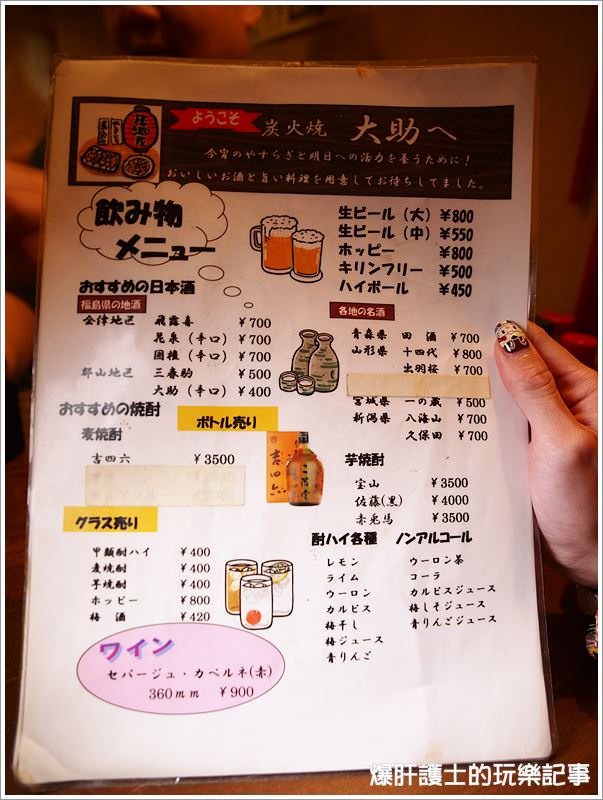 ようこそ 炭火焼 大助へ
今宵のやすらぎと明日への活力を養うために！
おいしいお酒と旨い料理を用意してお待ちしてました。
飲み物
メニュー
生ビール（大）￥800
生ビール（中）￥550
ホッピー ￥800
キリンフリー ￥500
ハイボール ￥450
おすすめの日本酒
福島県の地酒
会津地区 飛露喜 ￥700
花泉（辛口）￥700
国権（辛口）￥700
郡山地区 三春駒 ￥500
大助（辛口）￥400
各地の名酒
青森県 田酒 ￥700
山形県 十四代 ￥800
出羽桜 ￥700
宮城県 一の蔵 ￥500
新潟県 八海山 ￥700
久保田 ￥700
おすすめの焼酎 ボトル売り
麦焼酎
吉四六 ￥3500
吉四六
二階堂
芋焼酎
宝山 ￥3500
佐藤(黒) ￥4000
赤兎馬 ￥3500
グラス売り
甲類酎ハイ ￥400
麦焼酎 ￥400
芋焼酎 ￥400
ホッピー ￥800
梅酒 ￥420
酎ハイ各種
レモン
ライム
ウーロン
カルピス
梅干し
梅ジュース
青りんご
ノンアルコール
ウーロン茶
コーラ
カルピスジュース
梅しそジュース
青りんごジュース
ワイン
セパージュ・カベルネ(赤)
360ｍｍ ￥900
爆肝護士的玩樂記事